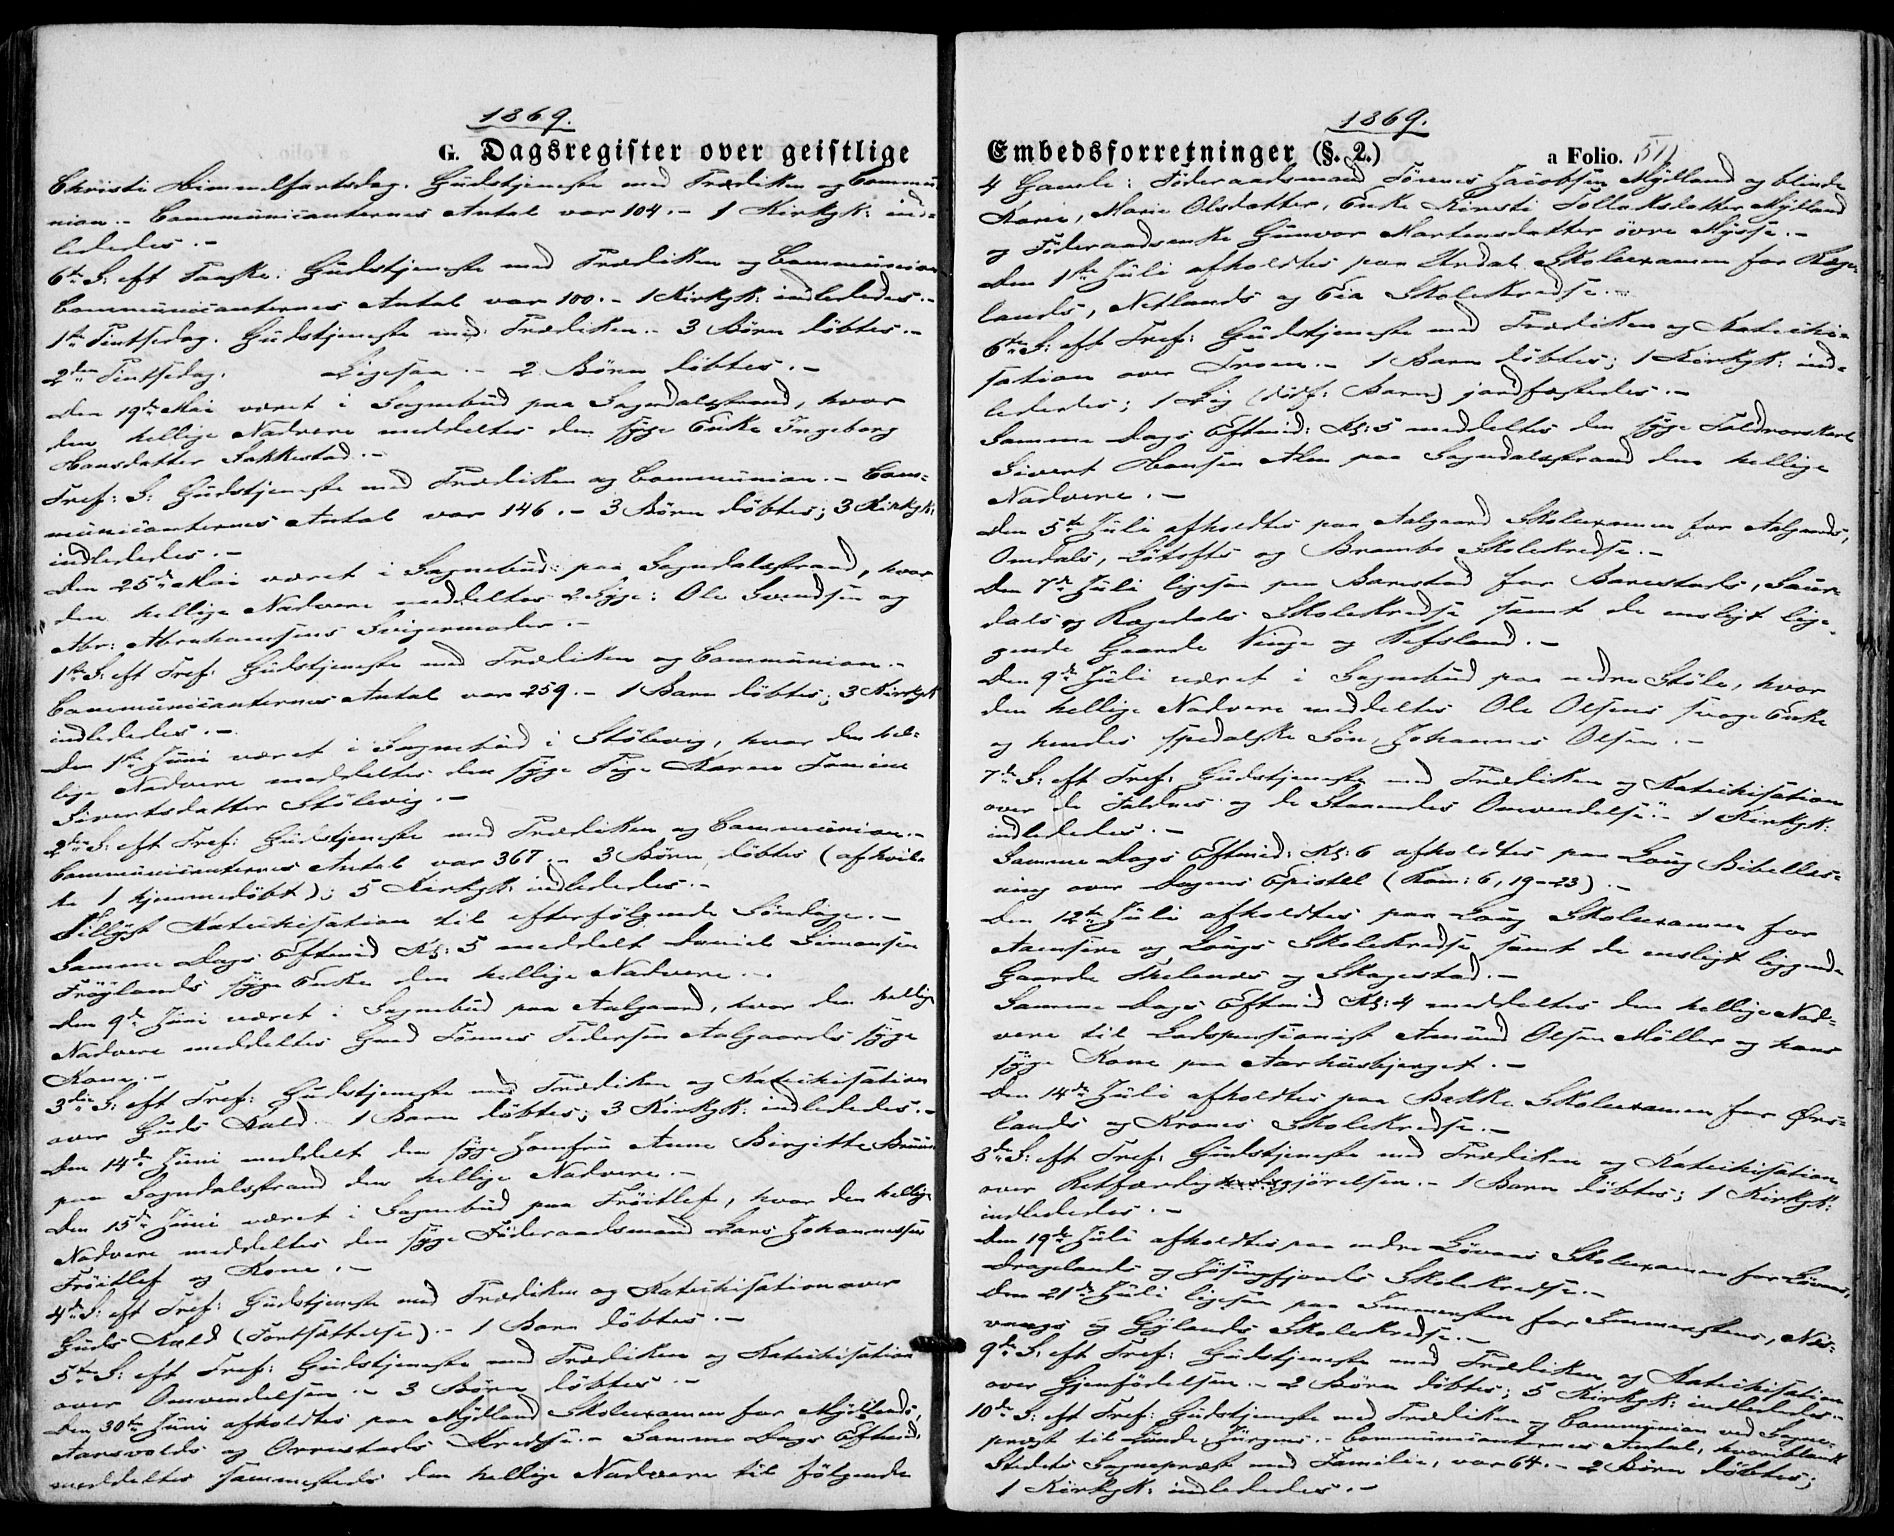 1869.
G. Dagsregister over geistlige
Christi Himmelfartsdag. Gudstjeneste med Prædiken og Commu-
nion.- Communicanternes Antal var 104.- 1 Kirkgk: ind-
lededes.-
6te S: eft Paaske. Gudstjeneste med Prædiken og Communion
Communicanternes Antal var 100.- 1 Kirkgk: indlededes.-
1ste Pintsedag. Gudstjeneste med Prædiken.- 3 Børn døbtes.-
2den Pintsedag. Ligesaa.- 2 Børn døbtes.-
Den 19de Mai været i Sognebud paa Sogndalsstrand, hvor
den hellige Nadvere meddeltes den syge Enke Ingeborg
Hansdatter Bakkestad.-
Tref: S: Gudstjeneste med Prædiken og Communion.- Com-
municanternes Antal var 146.- 3 Børn døbtes; 3 Kirkgk:
indlededes.-
Den 25de Mai været i Sognebud: paa Sogndalsstrand, hvor
den hellige Nadvere meddeltes 2 Syge: Ole Svendsen og
Abr: Abrahamsens Svigermoder.-
1ste S: eft Tref: Gudstjeneste med Prædiken og Communion.-
Communicanternes Antal var 259.- 1 Barn døbtes; 3 Kirkgk
indlededes.-
Den 1ste Juni været i Sognebud i Stølevig, hvor den hel-
lige Nadvere meddeltes den syge Pige Karen Tomine
Sivertsdatter Stølevig.-
2den S: eft Tref: Gudstjeneste med Prædiken og Communion.-
Communicanternes Antal var 367.- 3 Børn døbtes (af hvil-
ke 1 hjemmedøbt); 5 Kirkgk: indlededes.-
Tillyst Katechisation til efterfølgende Søndage.-
Samme Dags Eftmid Kl: 5 meddelt Daniel Simonsen
Frøylands syge Enke den hellige Nadvere.-
Den 9de Juni været i Sognebud paa Aalgaard, hvor den hellige
Nadvere meddeltes Gmd Tønnes Pedersen Aalgaards syge
Kone.-
3die S: eft Tref: Gudstjeneste med Prædiken og Katechisation
over Guds Kald. 1 Barn døbtes; 3 Kirkgk: indlededes.-
Den 14de Juni meddelt den syge Jomfru Anne Birgitte Bruun
paa Sogndalsstrand den hellige Nadvere.-
Den 15de Juni været i Sognebud paa Frøitlef, hvor den hellige
Nadvere meddeltes den syge Föderaadsmand Lars Johannessen
Frøitlef og Kone.-
4de S: eft Tref: Gudstjeneste med Prædiken og Katechisation over
Guds Kald (Fortsættelse).- 1 Barn døbtes.-
5te S: eft Tref: Gudstjeneste med Prædiken og Katechisation
over Omvendelsen.- 3 Børn døbtes.-
Den 30te Juni afholdtes paa Mydland Skolexamen for Mydlands,
Aarsvolds og Orrestads Kredse.- Samme Dags Eftmid:
meddeltes sammesteds den hellige Nadvere til følgende
1869.
Embedsforretninger (§. 2.) a Folio. 51
4 Gamle: Föderaadsmand Tönnes Jacobsen Mydland og blinde
Karen, Marie Olsdatter, Enke Kirsti Tollaksdatter Mydland
og Föderaadsenke Gunvor Martensdatter øvre Mysse.-
Den 1ste Juli afholdtes paa Urdal Skolexamen for Rege-
lands, Netlands og Eia Skolekredse.-
6te S: eft Tref: Gudstjeneste med Prædiken og Katechi-
sation over Troen.- 1 Barn døbtes; 1 Kirkgk: ind-
lededes; 1 Lig (dødf: Barn) jordfæstedes.-
Samme Dags Eftmid: Kl: 5 meddeltes den syge Toldrorskarl
Sivert Hansen Aln paa Sogndalsstrand den hellige
Nadvere.-
Den 5te Juli afholdtes paa Aalgaard Skolexamen for Aalgaards,
Omdals, Løtofts og Brambo Skolekredse.-
Den 7de Juli ligesaa paa Barstad for Barstads, Saur-
dals og Rægedals Skolekredse samt de ensligt lig-
gende Gaarde Vinje og Refsland.-
Den 9de Juli været i Sognebud paa nedre Støle, hvor
den hellige Nadvere meddeltes Ole Olsens svage Enke
og hendes spedalske Søn, Johannes Olsen.-
7de S: eft Tref: Gudstjeneste med Prædiken og Katechisation
over "de Faldnes og de Staaendes Omvendelse".- 1 Kirkgk:
indlededes.-
Samme Dags Eftmid: Kl: 6 afholdtes paa Loug Bibellæs-
ning over Dagens Epistel (Rom: 6, 19-23).-
Den 12te Juli afholdtes paa Loug Skolexamen for
Aamsere og Lougs Skolekredse samt de ensligt liggende
Gaarde Skelenes og Skogestad.-
Samme Dags Eftmid Kl: 4 meddeltes den hellige Nad-
vere til Lodspensionist Amund Olsen Møller og hans
syge Kone paa Aarhusbjerget.-
Den 14de Juli afholdtes paa Bakke Skolexamen for Ørs-
lands og Krones Skolekredse.-
8de S: eft Tref: Gudstjeneste med Prædiken og Katechisation
over Retfærdiggjørelsen.- 1 Barn døbtes; 1 Kirkgk:
indlededes.-
Den 19de Juli afholdtes paa nedre Løvaas Skolexamen for Løvaas,
Dragelands og Jøsingfjords Skolekredse.-
Den 21de Juli ligesaa paa Immersten for Immerstens, Nes-
vaags og Gylands Skolekredse.-
9de S: eft Tref: Gudstjeneste med Prædiken og Katechisation
over Gjenfødelsen.- 2 Børn døbtes; 5 Kirkgk: indlededes.-
10de S: eft Tref: Gudstjeneste med Prædiken og Communion ved Sogne-
præst til Lunde, Jürgens.- Communicanternes Antal, hvoriblandt
Stedets Sognepræst med Familie, var 64.- 2 Børn døbtes;
1 Kirkgk: indlededes.-